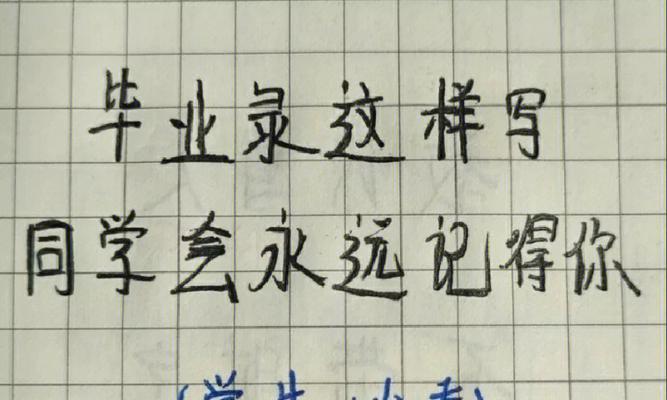 毕业录这样写
同学会永远记得你